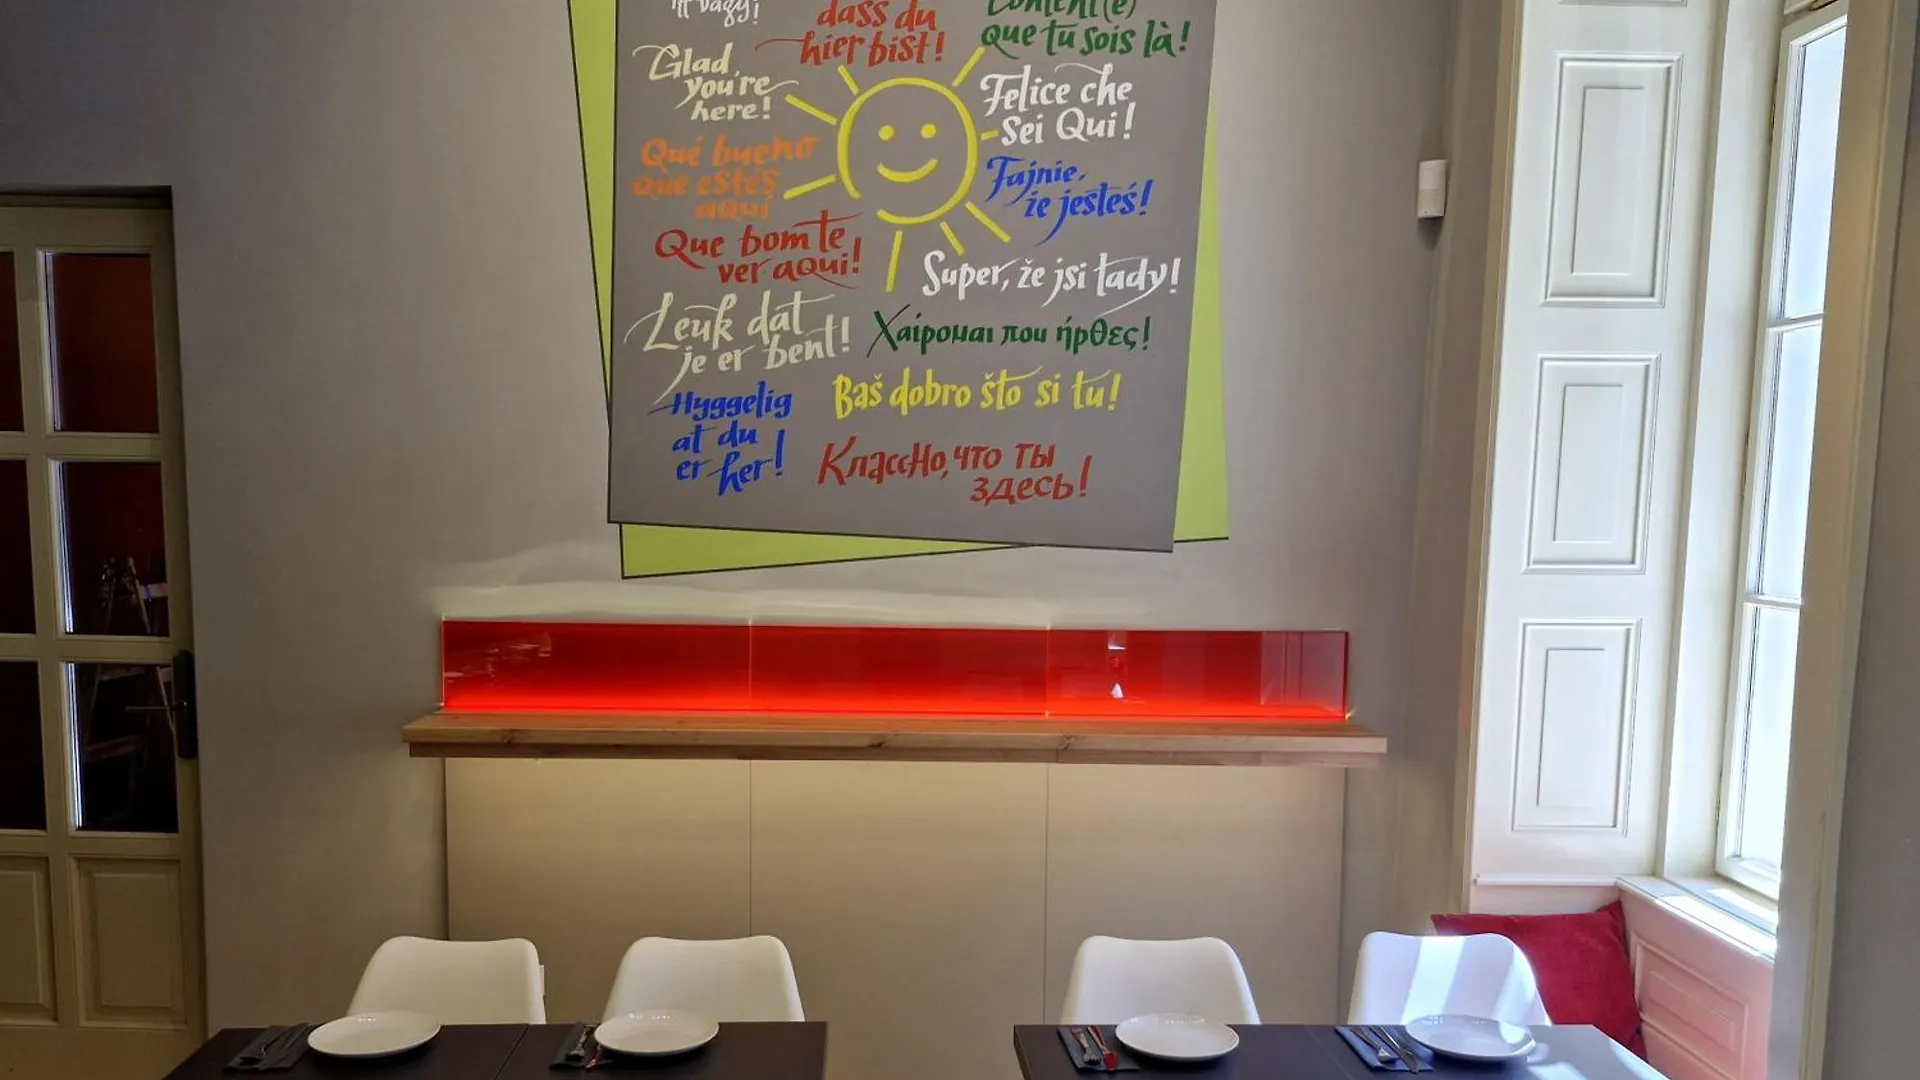 itt vagy!
dass du
hier bist!
content(e)
que tu sois là!
Glad
you're
here!
Felice che
sei Qui!
Qué bueno
que estés
aquí
Fajnie,
że jesteś!
Que bom te
ver aqui!
Super, že jsi tady!
Leuk dat
je er bent!
Χαίρομαι που ήρθες!
Baš dobro što si tu!
Hyggelig
at du
er her!
Классно, что ты
здесь!